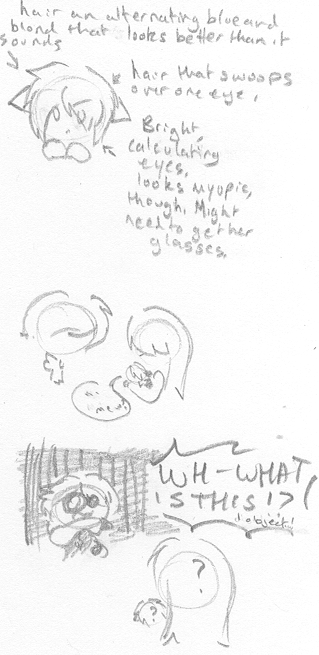 hair an alternating blue and
blond that looks better than it
sounds
hair that swoops
over one eye.
Bright,
calculating
eyes.
looks myopic,
though. Might
need to get her
glasses.
meu!
WH-WHAT
IS THIS!?
I object!
?
?